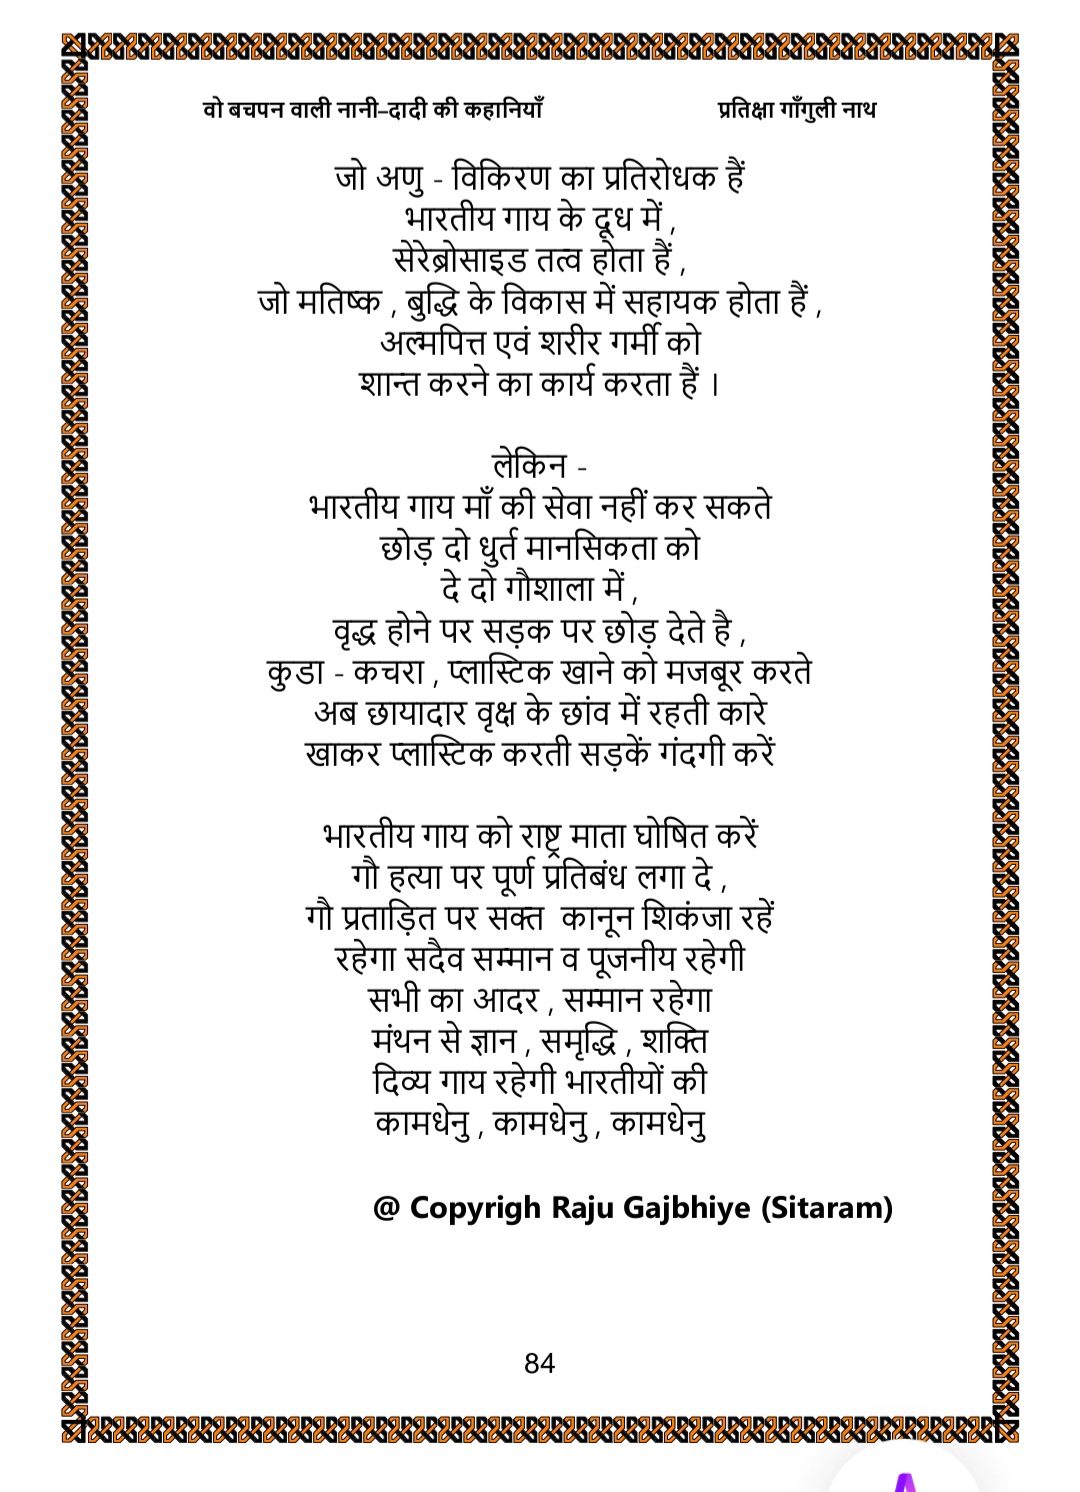 वो बचपन वाली नानी–दादी की कहानियाँ प्रतिक्षा गाँगुली नाथ
जो अणु - विकिरण का प्रतिरोधक हैं
भारतीय गाय के दूध में ,
सेरेब्रोसाइड तत्व होता हैं ,
जो मतिष्क , बुद्धि के विकास में सहायक होता हैं ,
अल्मपित्त एवं शरीर गर्मी को
शान्त करने का कार्य करता हैं ।
लेकिन -
भारतीय गाय माँ की सेवा नहीं कर सकते
छोड़ दो धुर्त मानसिकता को
दे दो गौशाला में ,
वृद्ध होने पर सड़क पर छोड़ देते है ,
कुडा - कचरा , प्लास्टिक खाने को मजबूर करते
अब छायादार वृक्ष के छांव में रहती कारे
खाकर प्लास्टिक करती सड़कें गंदगी करें
भारतीय गाय को राष्ट्र माता घोषित करें
गौ हत्या पर पूर्ण प्रतिबंध लगा दे ,
गौ प्रताड़ित पर सक्त कानून शिकंजा रहें
रहेगा सदैव सम्मान व पूजनीय रहेगी
सभी का आदर , सम्मान रहेगा
मंथन से ज्ञान , समृद्धि , शक्ति
दिव्य गाय रहेगी भारतीयों की
कामधेनु , कामधेनु , कामधेनु
@ Copyrigh Raju Gajbhiye (Sitaram)
84